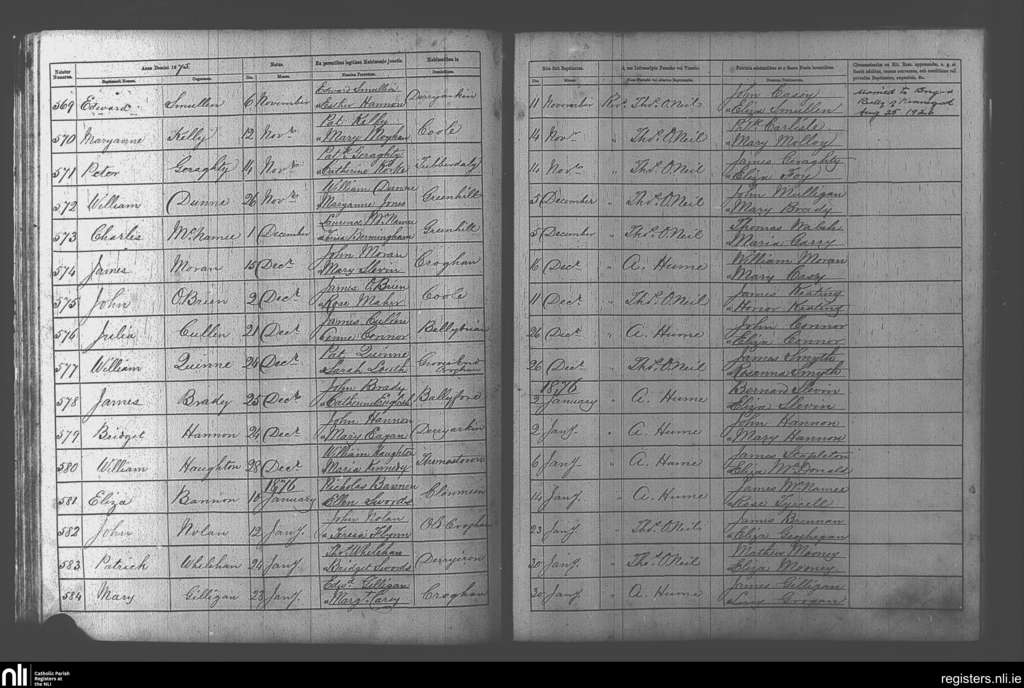 Anno Domini 1875.
Natus
Ex parentibus legitime Habitantis junctis
Habitantibus in
Baptismatis Nomen.
Cognomen.
Die.
Mense.
Nomina Parentum.
Domicilium.
569 Edward Smullen 6 November Edward Smullen
Esther Hannon Derryarkin
570 Maryanne Kelly 12 Novr Pat. Kelly
Mary Meeghan Coole
571 Peter Geraghty 14 Novr Patk Geraghty
Catherine Rorke Tubberdaly
572 William Dunne 26 Novr William Dunne
Maryanne Jones Greenhill
573 Charles McNamee 1 December Laurence McNamee
Bermingham Greenhill
574 James Moran 15 Decr John Moran
Mary Slevin Croghan
575 John O'Brien 2 Decr James O'Brien
Rose Maher Coole
576 Julia Cullen 21 Decr James Cullen
Connor Ballybrian
577 William Quinne 24 Decr Pat Quinne
Sarah South Croghan
578 James Brady 25 Decr John Brady
Catherine English Ballyfore
579 Bridget Hannon 24 Decr John Hannon
Mary Eagan Derryarkin
580 William Haughton 28 Decr William Haughton
Maria Kennedy Thomastown
581 Eliza Bannon 16 1876 January Nicholas Bannon
Ellen Swords Clonmeen
582 John Nolan 12 Jany. John Nolan
Teresa Flynn Old Croghan
583 Patrick Whelehan 24 Jany. Whelehan
Bridget Swords Derryiron
584 Mary Gilligan 23 Jany. Edwd Gilligan
Margt Carey Croghan
Rite fuit Baptizatus.
Die.
Mense.
11 November Revd. Thos. O'Neil John Casey
Eliza Smullen Married to
Reilly of
Aug 25 1920
14 Novr " Thos. O'Neil Patk Carlisle
Mary Molloy
14 Novr " Thos. O'Neil James Geraghty
Eliza Foy
5 December " Thos. O'Neil John Mulligan
Mary Brady
5 December " Thos. O'Neil Thomas Walsh
Maria Carry
16 Decr " A. Hume William Moran
Mary Casey
11 Decr " Thos. O'Neil James Keating
Honor Keating
26 Decr " A. Hume John Connor
Eliza Connor
26 Decr " Thos. O'Neil James Smyth
Rosanna Smyth
2 1876 January " A. Hume Bernard Slevin
Eliza Slevin
2 Jany. " A. Hume John Hannon
Mary Hannon
6 Jany. " A. Hume James Stapleton
Eliza McDonald
14 Jany. " A. Hume James McNamee
Rose Tyrrell
23 Jany. " Thos. O'Neil James Brennan
Eliza Geoghegan
30 Jany. " Thos. O'Neil Mathew Mooney
Eliza Mooney
30 Jany. " A. Hume James Gilligan
Lucy Grogan
nli
Catholic Parish
Registers at
the NLI
registers.nli.ie